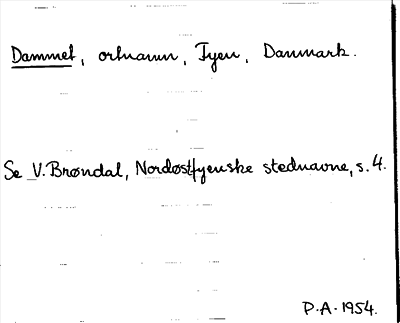 Dammet, ortnamn, Fyen, Danmark.
Se V. Brøndal, Nordøstfyenske stednavne, s. 4.
P.A. 1954.